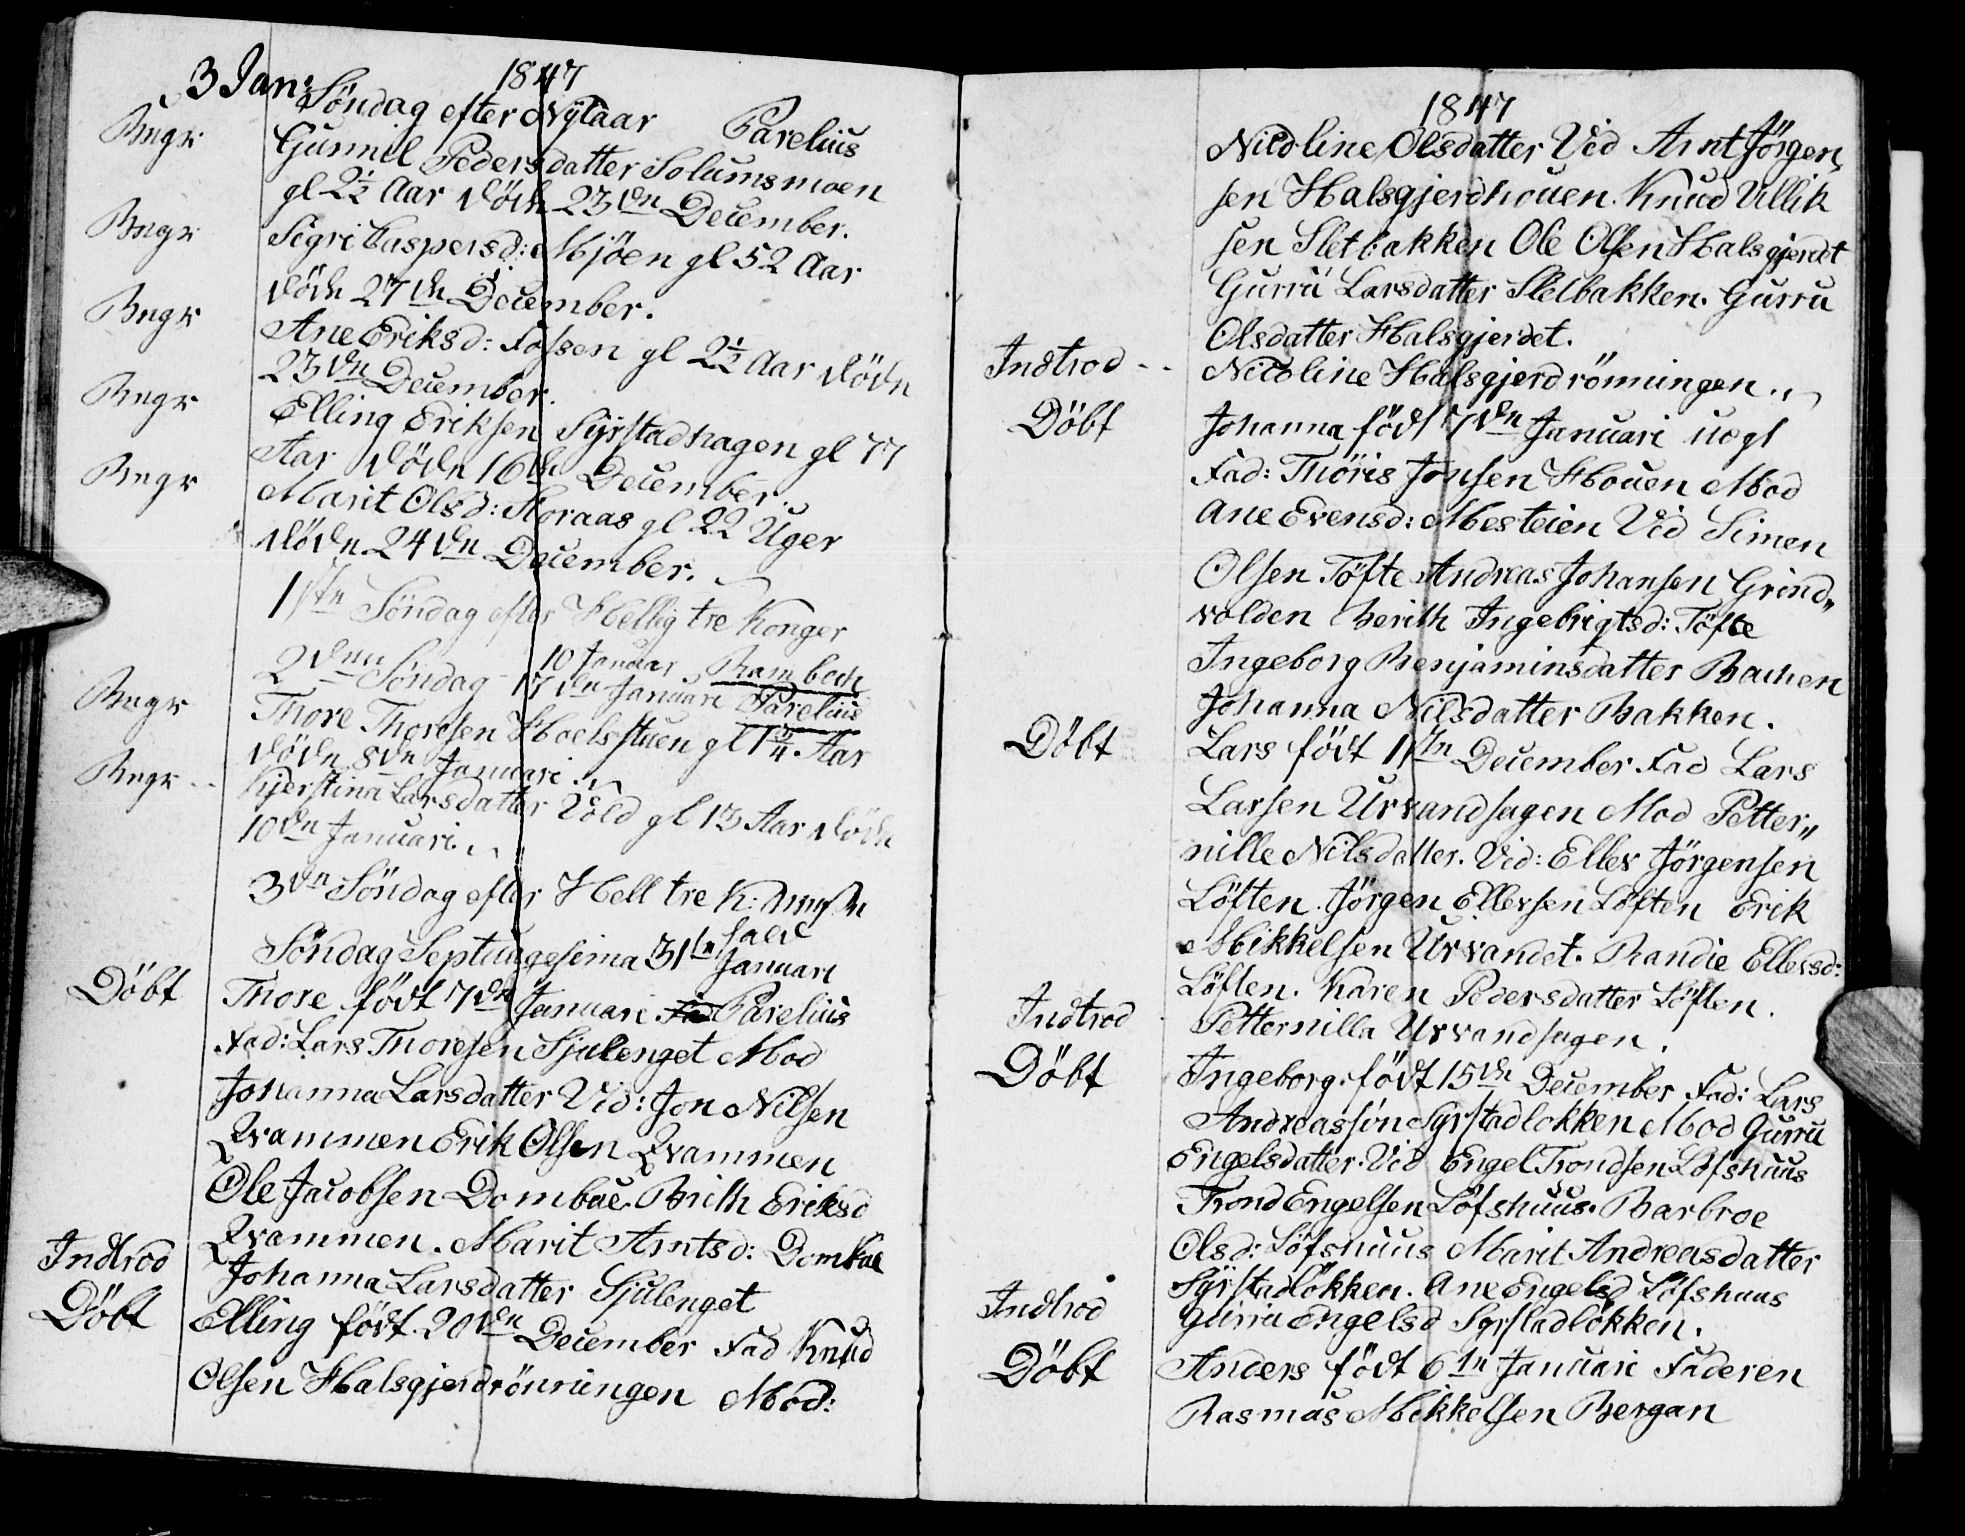 1847
3 Jan: Söndag efter Nÿtaar Parelius
Begr Gunnil Pedersdatter Solumsmoen
gl 2½ Aar död 23de December.
Begr Sigri Caspersd: Mjöen gl 52 Aar
död 27de December.
Begr Ane Eriksd: Fossen gl 2½ Aar död
23de December.
Begr Elling Eriksen Sÿrstadhagen gl 77
Aar död 16de December.
Begr Marit Olsd: Storaas gl 22 Uger
död 24de December.
1ste Söndag efter Hellig tre Konger
10 Januar. Rambech
2den Söndag 17de Januari Parelius
Begr Thore Thoresen Hoelsstuen gl 1¾ Aar
död 8de Januari.
Begr Kjerstina Larsdatter Vold gl 13 Aar död
10de Januari.
3de Söndag efter Hell tre K:
Söndag Septuagesima 31te Januari
Döbt Thore födt 7de Januari Fad Parelius
Fad: Lars Thoresen Sjulenget Mod
Johanna Larsdatter Vid: Jon Nilsen
Qvammen Erik Olsen Qvammen
Ole Jacobsen Dombae. Brith Eriksd
Qvammen. Marit Arntsd: Dombae
Indtrod Johanna Larsdatter Sjulenget
Döbt Elling födt 20de December Fad Knud
Olsen Halsgjerdrönningen Mod:
1847
Nicoline Olsdatter Vid Arnt Jörgen,,
sen Halsgjerdhouen. Knud Ullik
sen Sletbakken Ole Olsen Halsgjerdet
Gurru Larsdatter Sletbakken. Gurru
Olsdatter Halsgjerdet.
Indtrod - - Nicoline Halsgjerdrönningen.
Döbt Johanna född 7de Januari uegt
Fad: Thöris Jonsen Houen Mod
Ane Evensd: Mesteien Vid Simen
Olsen Töfte Andreas Johansen Grind,,
volden Berith Ingebrigtsd: Töfte
Ingeborg Benjaminsdatter Bachen
Johanna Nilsdatter Bakken.
Döbt Lars födt 11te December Fad Lars
Larsen Urvandsagen Mod Petter,,
nille Nilsdatter. Vid: Ellev Jörgensen
Löften. Jörgen Ellevsen Löften Erik
Mikkelsen Urvandet. Randie Ellevsd:
Löften. Karen Pedersdatter Löften.
Indtrod Petternilla Urvandsagen.
Döbt Ingeborg födt 15de December Fad: Lars
Andreassön Syrstadlokken Mod Gurru
Engelsdatter. Vid Engel Trondsen Löfshuus
Trond Engelsen Löfshuus. Barbroe
Olsd: Löfshuus Marit Andreasdatter
Sÿrstadlökken. Ane Engelsd Löfshuus
Indtrod Gurru Engelsd Syrstadlökken.
Döbt Anders födt 6te Januari Faderen
Rasmus Mikkelsen Bergan